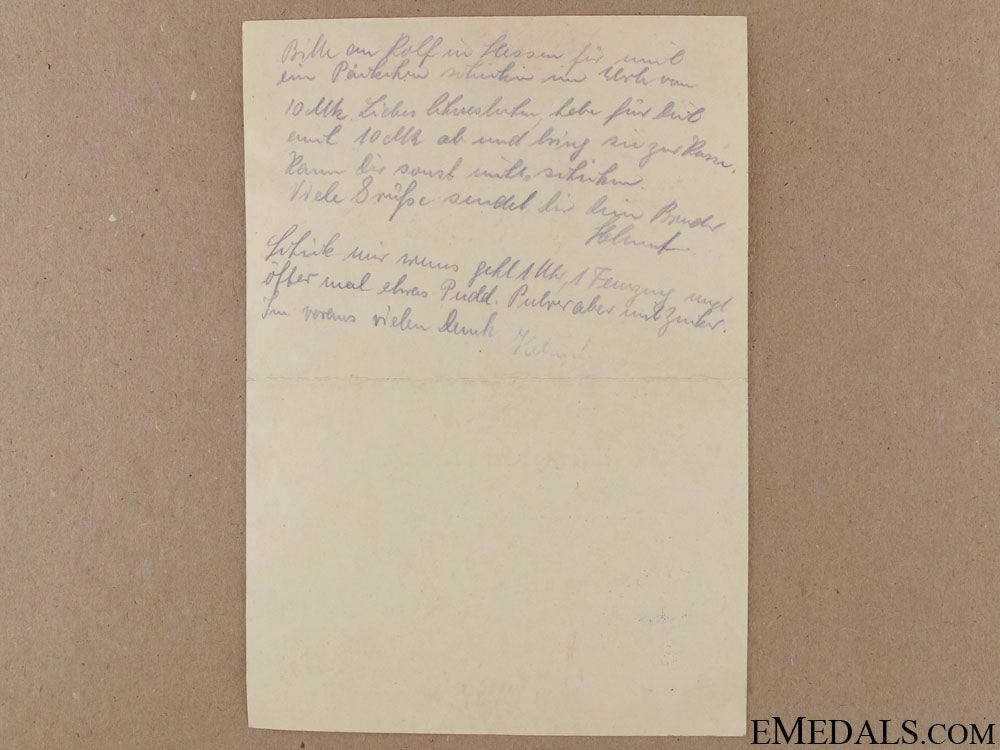 Bitte an Rolf in Hessen für mich
ein Päckchen schicken im Wert von
10 Mk. Liebes, hebe für dich
und 10 Mk ab und bring sie zur Kasse.
Kann Dir sonst nichts schicken.
Viele Grüße sendet dir dein Bruder
Helmut.
Schick mir wenns geht 1 Uhr, 1 Feuerzeug und
öfter mal etwas Pudd. Pulver aber mit Zucker.
Im voraus vielen Dank
Helmut.
EMEDALS.COM